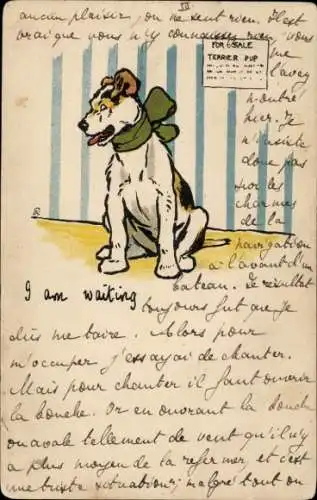 III
aucun plaisir, on ne sent rien. Il est
vrai que vous n'y connaissez rien, vous
FOR SALE
TERRIER PUP
me
l'avez
montré
hier. Je
n'insiste
donc pas
sur les
charmes
de la
navigation
à l'avant d'un
bateau. Le résultat
I am waiting
toujours fut que je
dus me taire. Alors pour
m'occuper j'essayai de chanter.
Mais pour chanter il faut ouvrir
la bouche. Or en ouvrant la bouche
on avale tellement de vent qu'il n'y
a plus moyen de la refermer, et c'est
une triste situation; malgré tout on